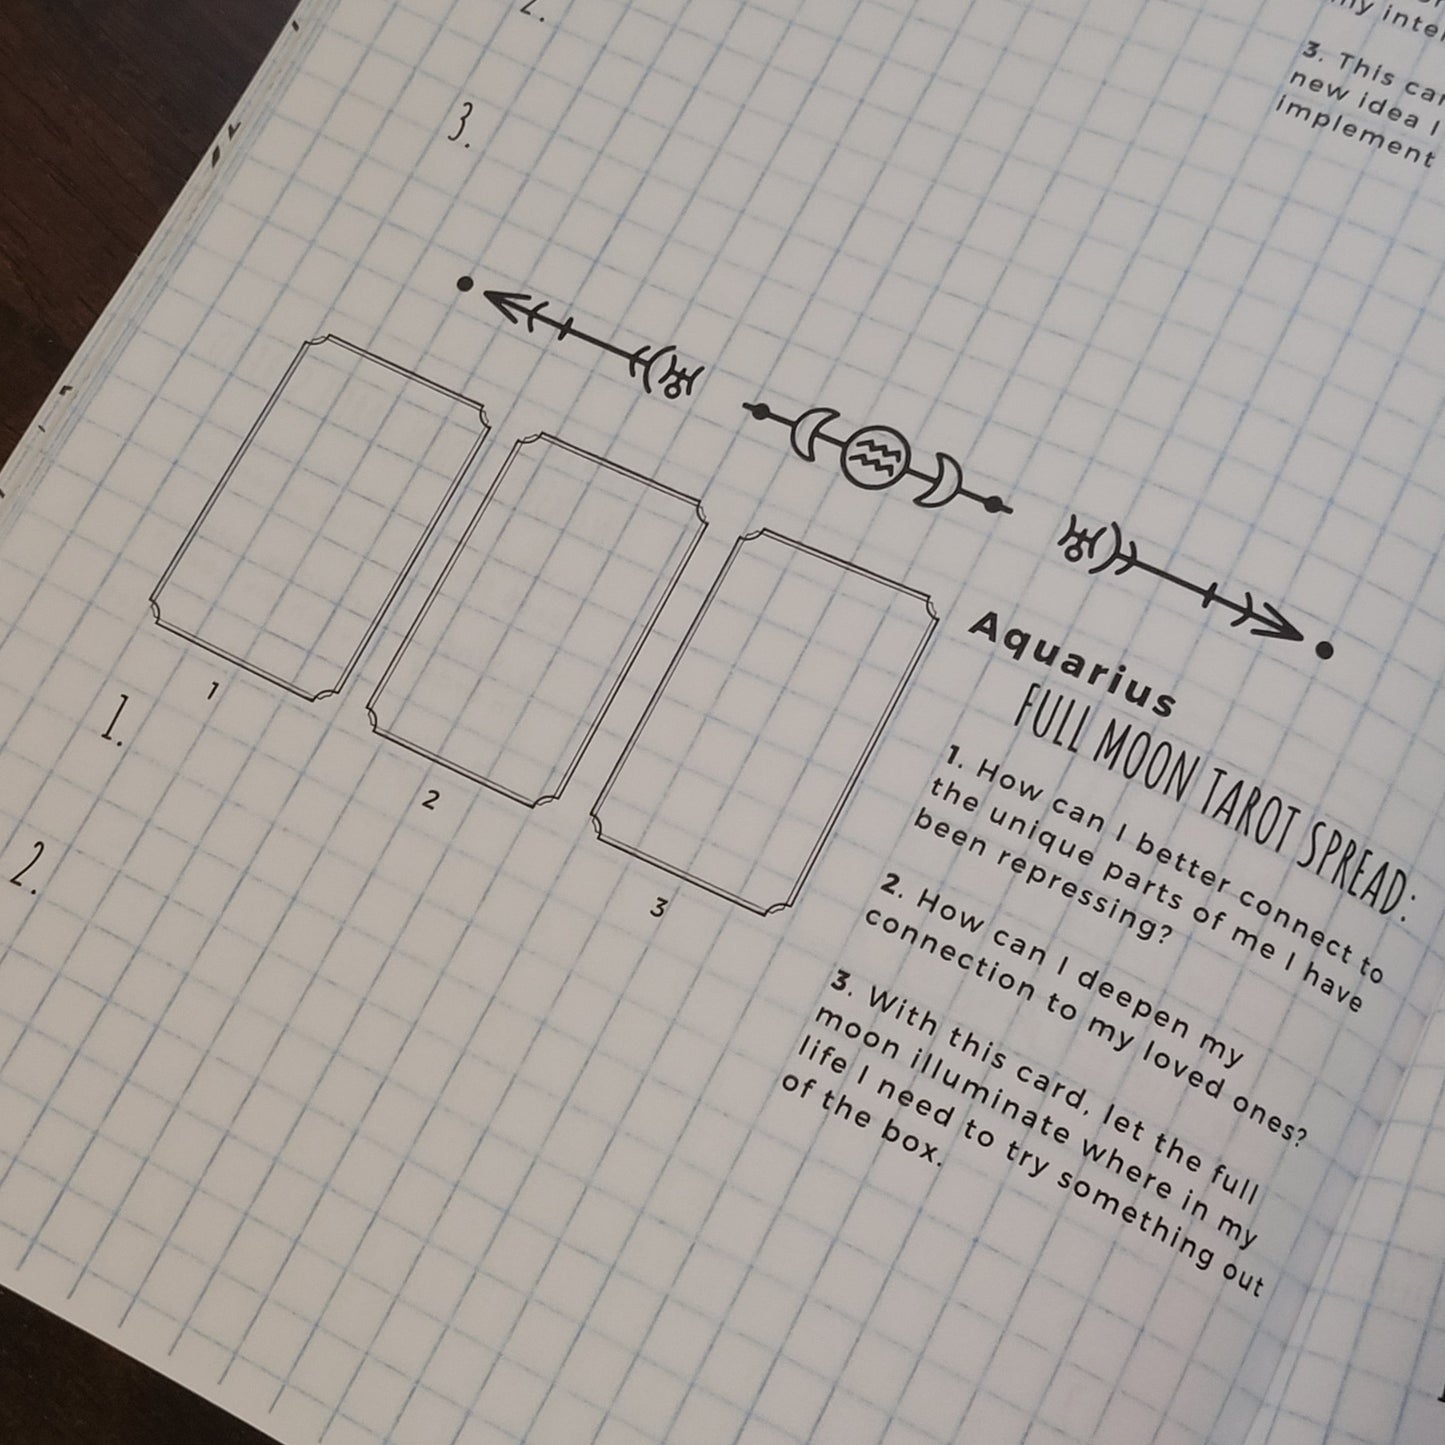 2.
3.
3. This
new idea I
implement
1
2
3
1.
2.
Aquarius
FULL MOON TAROT SPREAD:
1. How can I better connect to
the unique parts of me I have
been repressing?
2. How can I deepen my
connection to my loved ones?
3. With this card, let the full
moon illuminate where in my
life I need to try something out
of the box.